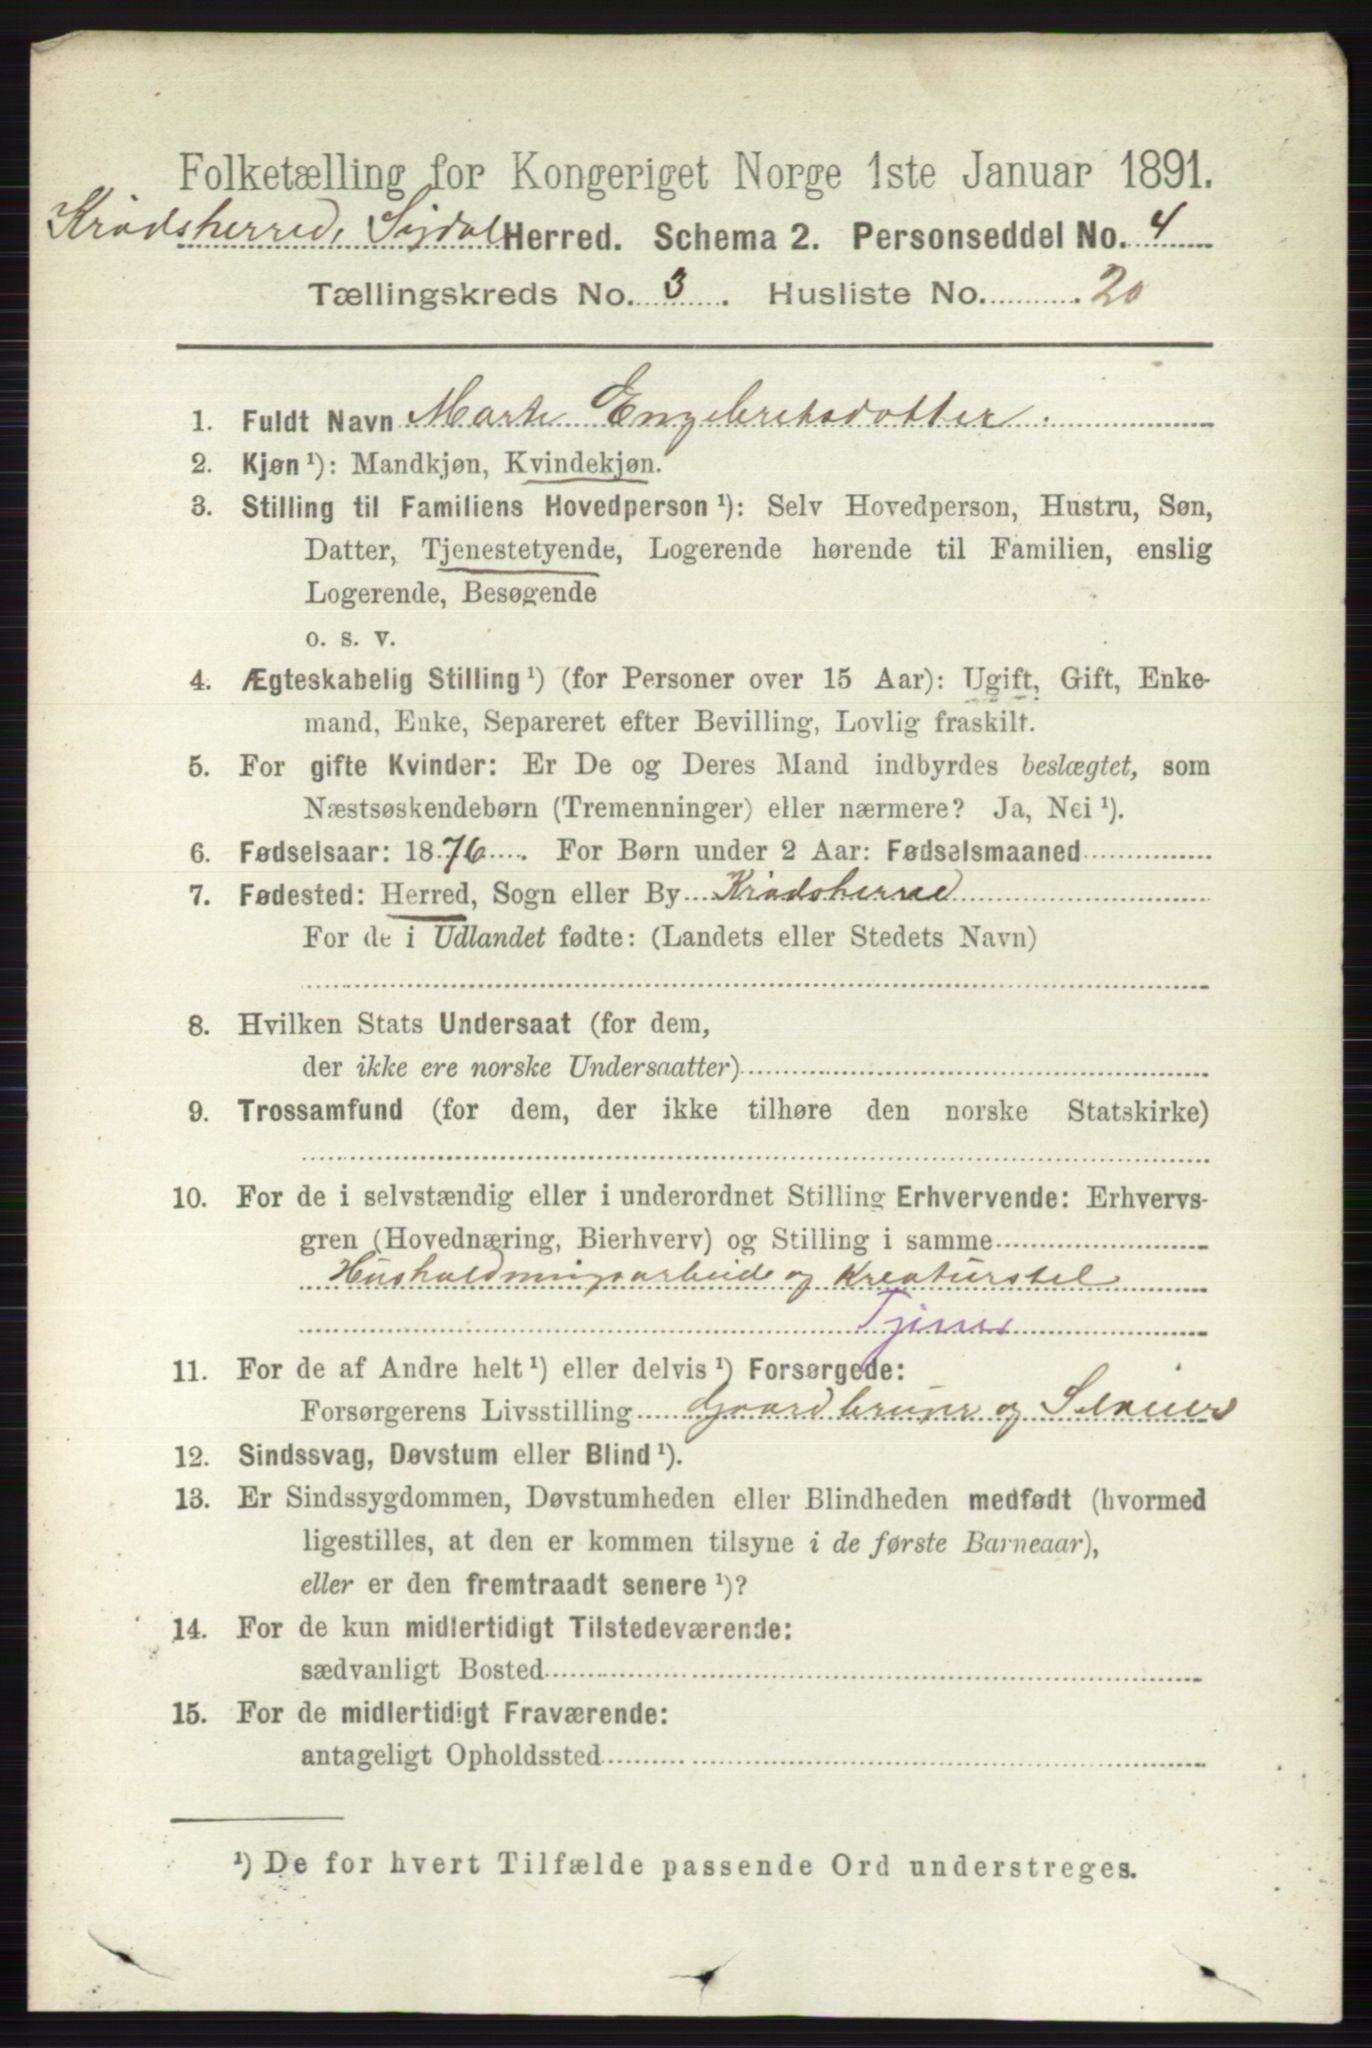 Folketælling for Kongeriget Norge 1ste Januar 1891.
Krødsherred, Sigdal Herred. Schema 2. Personseddel No. 4
Tællingskreds No. 3. Husliste No. 20
1. Fuldt Navn Marte Engebretsdotter.
2. Kjøn ¹): Mandkjøn, Kvindekjøn.
3. Stilling til Familiens Hovedperson ¹): Selv Hovedperson, Hustru, Søn,
Datter, Tjenestetyende, Logerende hørende til Familien, enslig
Logerende, Besøgende
o. s. v.
4. Ægteskabelig Stilling ¹) (for Personer over 15 Aar): Ugift, Gift, Enke-
mand, Enke, Separeret efter Bevilling, Lovlig fraskilt.
5. For gifte Kvinder: Er De og Deres Mand indbyrdes beslægtet, som
Næstsøskendebørn (Tremenninger) eller nærmere? Ja, Nei ¹).
6. Fødselsaar: 1876. For Børn under 2 Aar: Fødselsmaaned
7. Fødested: Herred, Sogn eller By Krødsherred
For de i Udlandet fødte: (Landets eller Stedets Navn)
8. Hvilken Stats Undersaat (for dem,
der ikke ere norske Undersaatter)
9. Trossamfund (for dem, der ikke tilhøre den norske Statskirke)
10. For de i selvstændig eller i underordnet Stilling Erhvervende: Erhvervs-
gren (Hovednæring, Bierhverv) og Stilling i samme
Husholdningsarbeide og Kreaturstel
Tjener
11. For de af Andre helt ¹) eller delvis ¹) Forsørgede:
Forsørgerens Livsstilling Gaardbruger og Selveier
12. Sindssvag, Døvstum eller Blind ¹).
13. Er Sindssygdommen, Døvstumheden eller Blindheden medfødt (hvormed
ligestilles, at den er kommen tilsyne i de første Barneaar),
eller er den fremtraadt senere ¹)?
14. For de kun midlertidigt Tilstedeværende:
sædvanligt Bosted
15. For de midlertidigt Fraværende:
antageligt Opholdssted
¹) De for hvert Tilfælde passende Ord understreges.